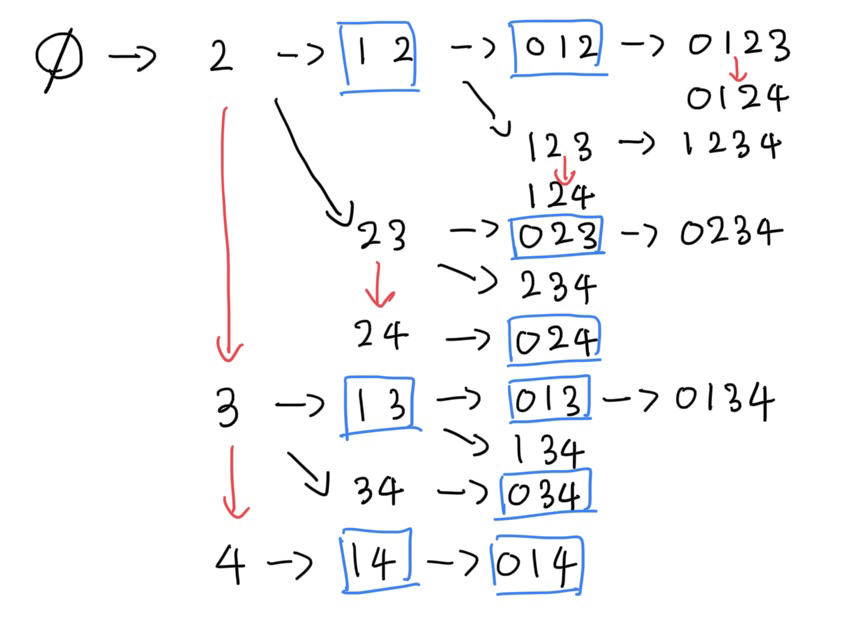 ∅ → 2 → 12 → 012 → 0123
0124
123 → 1234
124
23 → 023 → 0234
234
24 → 024
3 → 13 → 013 → 0134
134
34 → 034
4 → 14 → 014